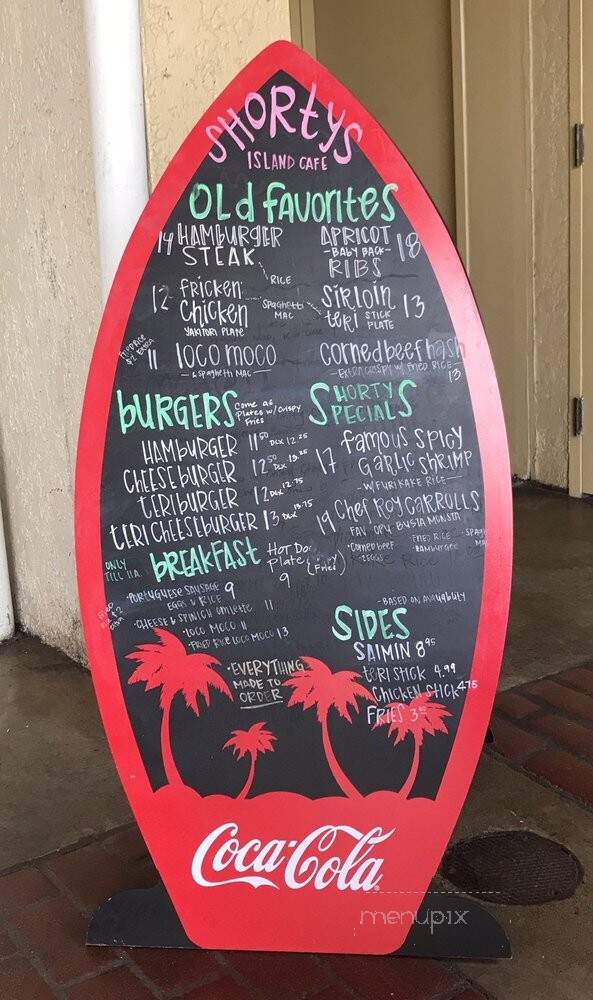 SHORTYS
ISLAND CAFE
OLd FAVORITES
14 HAMBURGER
STEAK
RICE
APRICOT 18
-BABY BACK-
RIBS
12 FRICKEN
Chicken
YAKITORI PLATE
Spaghetti
MAC
SIRLOIN 13
TERI STICK
PLATE
11 LOCO MOCO
& SPAGHETTI MAC
cornedbeefhash
EXTRA CRISPY W/ FRIED RICE
13
BURGERS Come as
Plates w/ Crispy
Fries
HAMBURGER 11 50 DLX 12.25
CHEESEBURGER 12 50 DLX
TERIBURGER 12 DLX 12.75
TERI CHEESEBURGER 13 DLX 13.75
SHORTY
SPECIALS
17 FAMOUS SPICY
GARLIC SHRIMP
W/ FURIKAKE RICE
19 Chef ROY CARROLLS
FAV OPU BUSTA MUNSTA
·Corned beef
FRIED RICE
HAMBURGER
SPAG
MAC
EGGS
-BASED ON AVAILABILITY
ONLY
TILL 11A.
BREAKFAST
HOT DOG
Plate
(Fries)
9
·PORTUGUESE SAUSAGE 9
EGGS & RICE
·CHEESE & SPINICH OMLETTE 11
·LOCO MOCO 11
·FRIED RICE LOCO MOCO 13
·EVERYTHING
MADE TO
ORDER
SIDES
SAIMIN 8 95
TERI STICK 4.99
CHICKEN STICK 4.75
FRIES 3
Coca-Cola
menupix